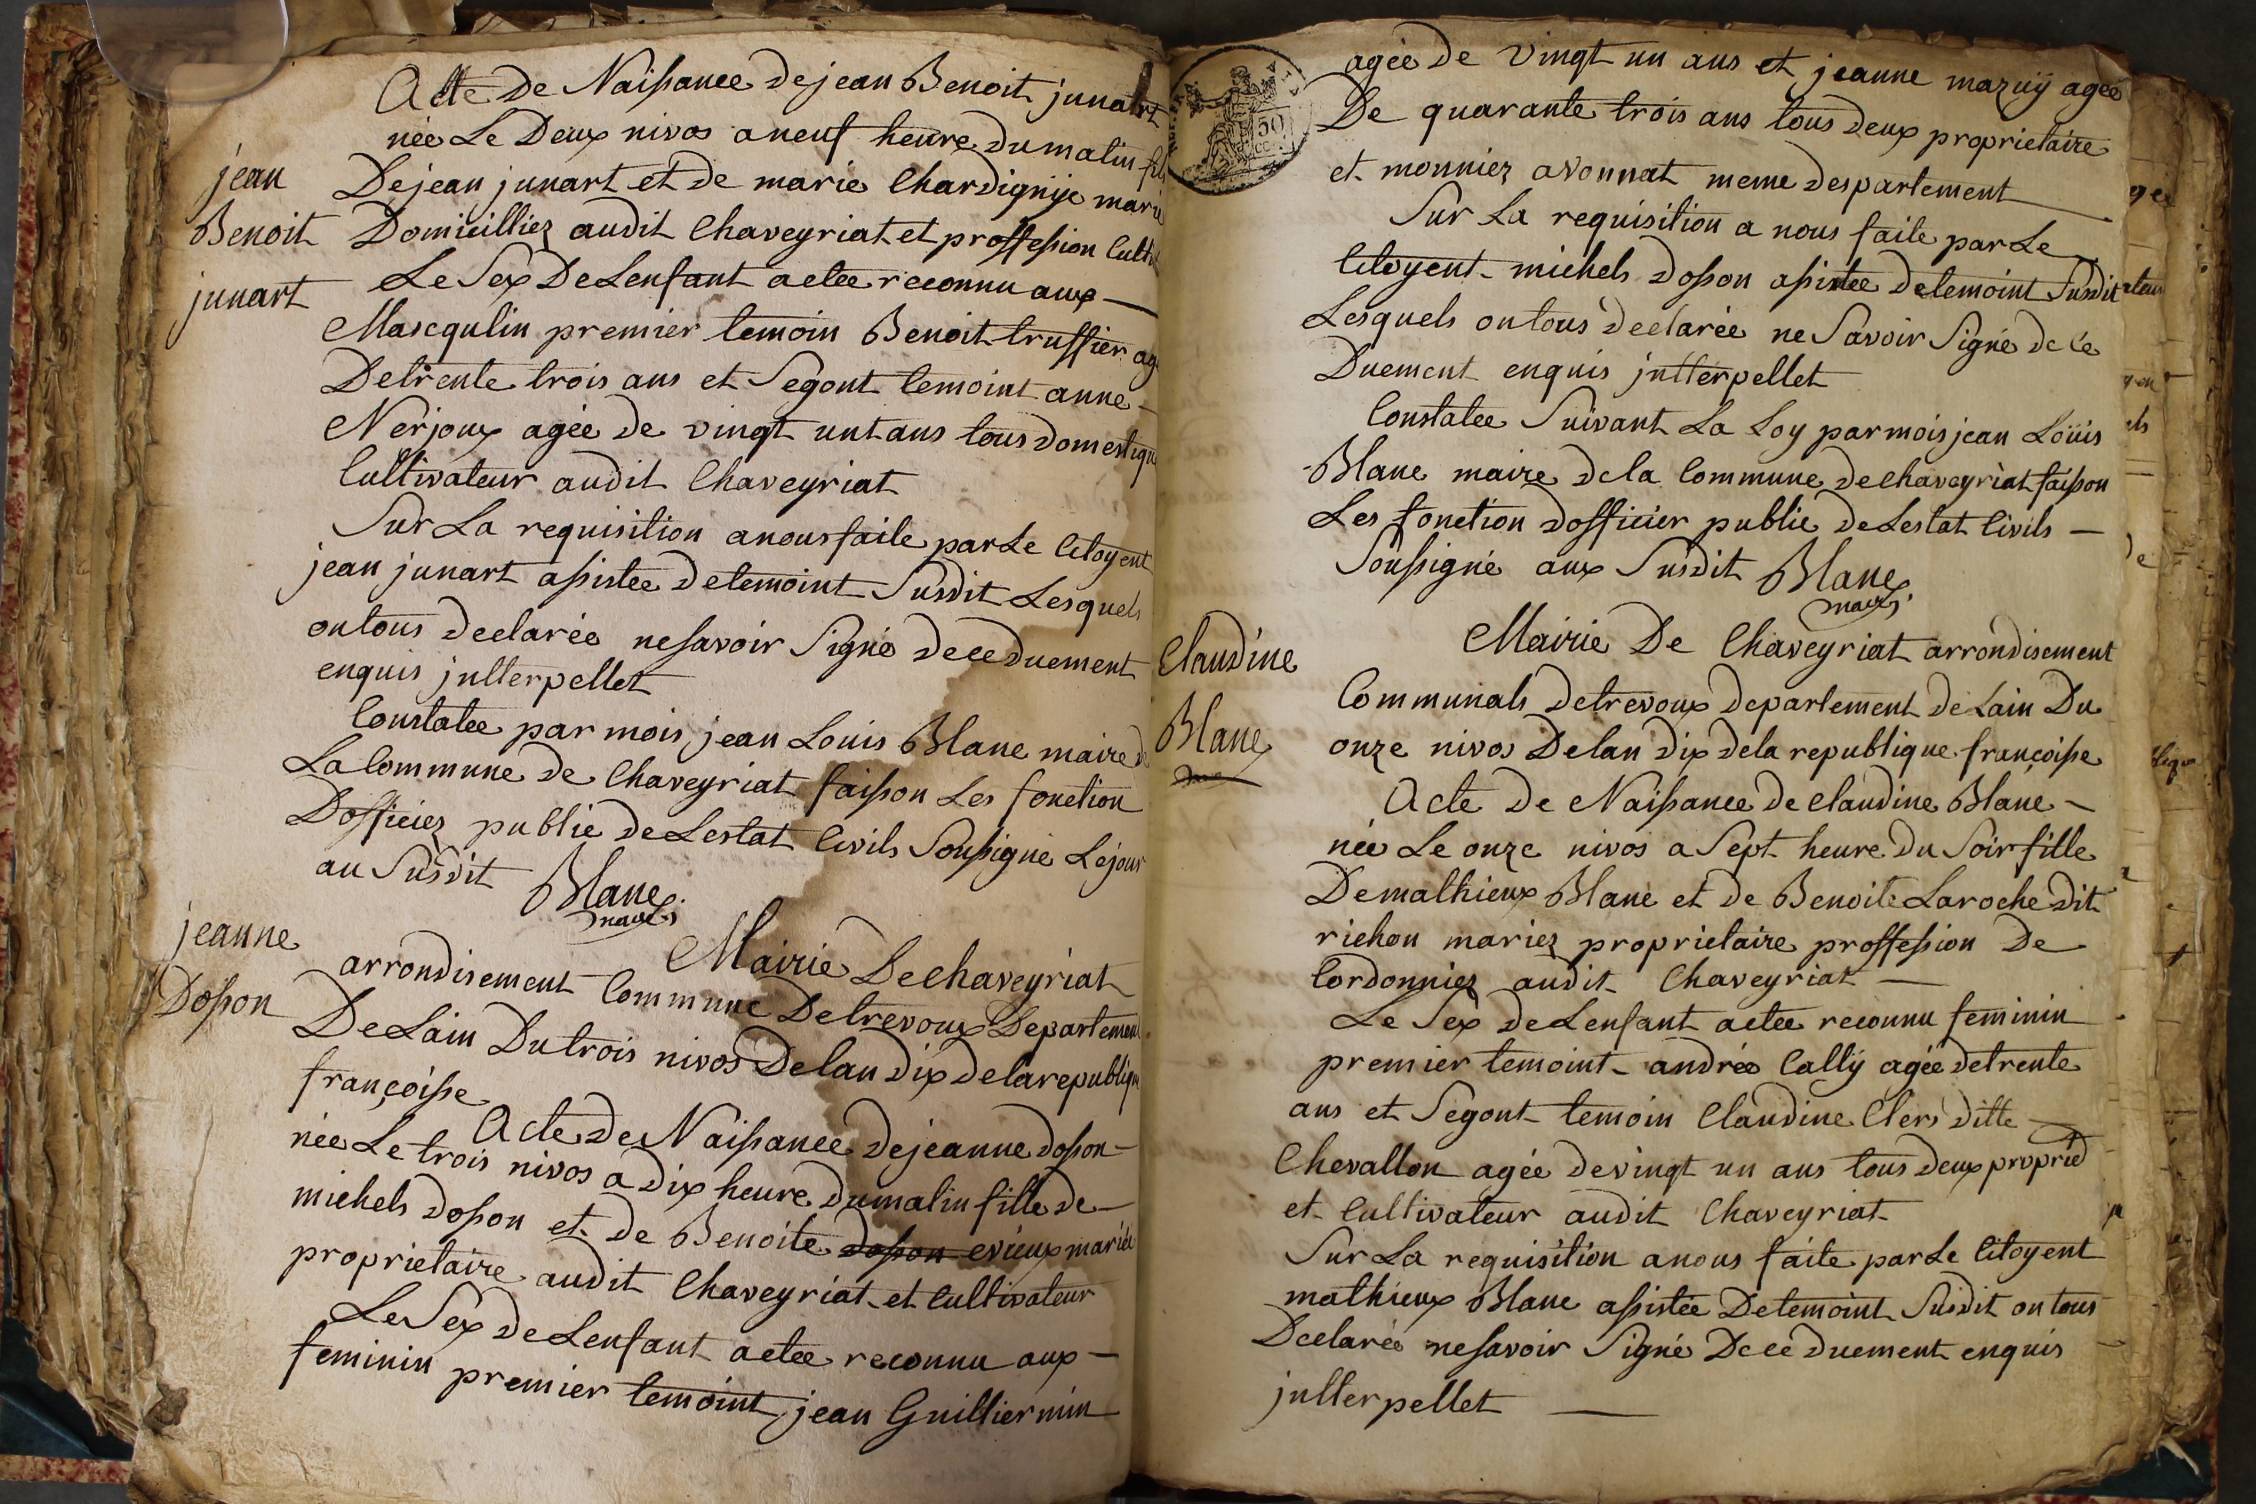 Acte De Naissance de jean Benoit junart
née Le Deux nivos a neuf heure du matin fils
De jean junart et de marie Chardignije marié
Domicilliez audit Chaveyriat et proffession Cultiv
Le Sex De Lenfant aetee reconnu aux
Mascqulin premier temoin Benoit truffier ag
De trente trois ans et Segont temoint anne
Nerjoux agée de vingt unt ans tous domestique
Cultivateur audit Chaveyriat
Sur La requisition a nous faite par Le Citoyent
jean junart assistee de temoint Susdit Lesquels
on tous declarée ne savoir Signé de ce duement
enquis jntterpellet
Constatee par mois jean Louis Blanc maire d
La Commune de Chaveyriat faisson Les fonction
Dofficiez public de Lestat Civils Soussigné Le jour
au Susdit Blanc
maire
jean
Benoit
junart
jeanne
Dosson
Mairie De Chaveyriat
arrondisement Commune De trevoux Departement
De Lain Du trois nivos De lan dix de la republique
françoisse
Acte De Naissance de jeanne dosson
née Le trois nivos a dix heure du matin fille de
michels dosson et de Benoite dosson evieux mariée
proprietaire audit Chaveyriat et Cultivateur
Le Sex de Lenfant aetee reconnu aux
feminin premier temoint jean Guilliermin
50
agée de vingt un ans et jeanne mazuÿ agée
De quarante trois ans tous deux proprietaire
et monniez a vonnat meme despartement
Sur La requisition a nous faite par Le
Citoyent michels dosson asistee de temoint Susdit
Lesquels on tous declarée ne Savoir Signé de ce
Duement enquis jntterpellet
Constatee Suivant La Loy par mois jean Loüis
Blanc maire de la Commune de Chaveyriat faisson
Les fonction dofficier public de Lestat Civils
Soussigné aux Susdit Blanc
maire
Claudine
Blanc
Mairie De Chaveyriat arrondisement
Communals de trevoux departement de Lain Du
onze nivos De lan dix de la republique françoisse
Acte De Naissance de Claudine Blanc
née Le onze nivos a Sept heure du Soir fille
De mathieux Blanc et de Benoite Laroche dit
richon mariez proprietaire proffession De
Cordonniez audit Chaveyriat
Le Sex de Lenfant aetee reconnu feminin
premier temoint andrée Callÿ agée de trente
ans et Segont temoin Claudine Clers ditte
Chevallon agée de vingt un ans tous deux propried
et Cultivateur audit Chaveyriat
Sur La requisition a nous faite par Le Citoyent
mathieux Blanc assistée De temoint Susdit on tous
Declarée ne savoir Signé De ce duement enquis
jntterpellet